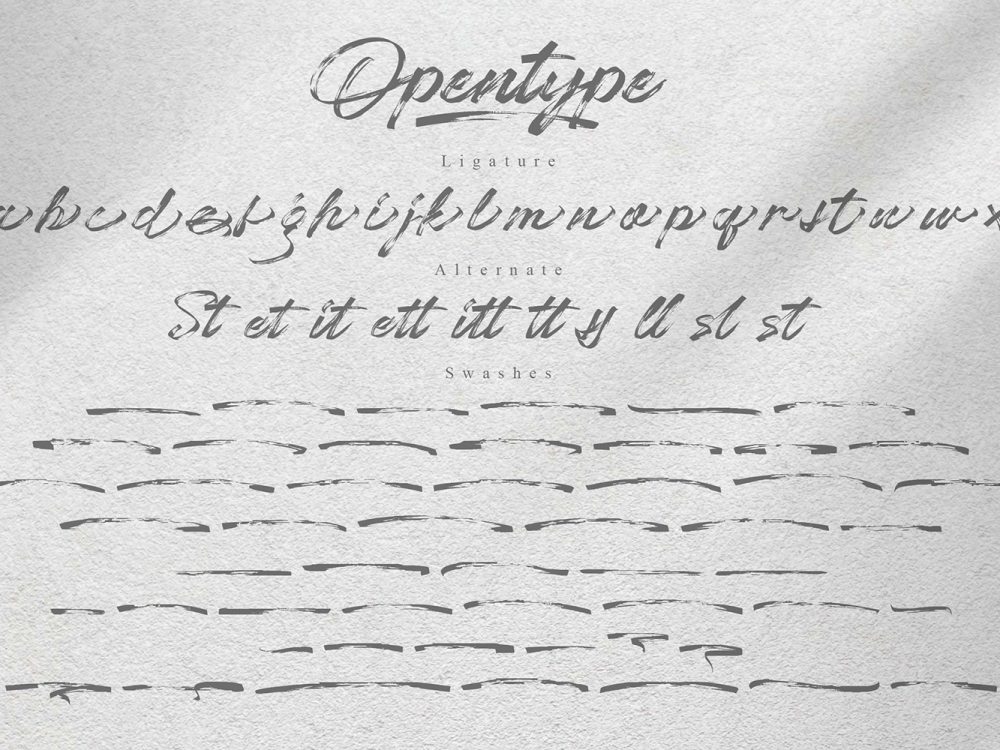 Opentype
Ligature
a b c d e f g h i j k l m n o p q r s t u w x
Alternate
St et it ett itt tt ff ll sl st
Swashes